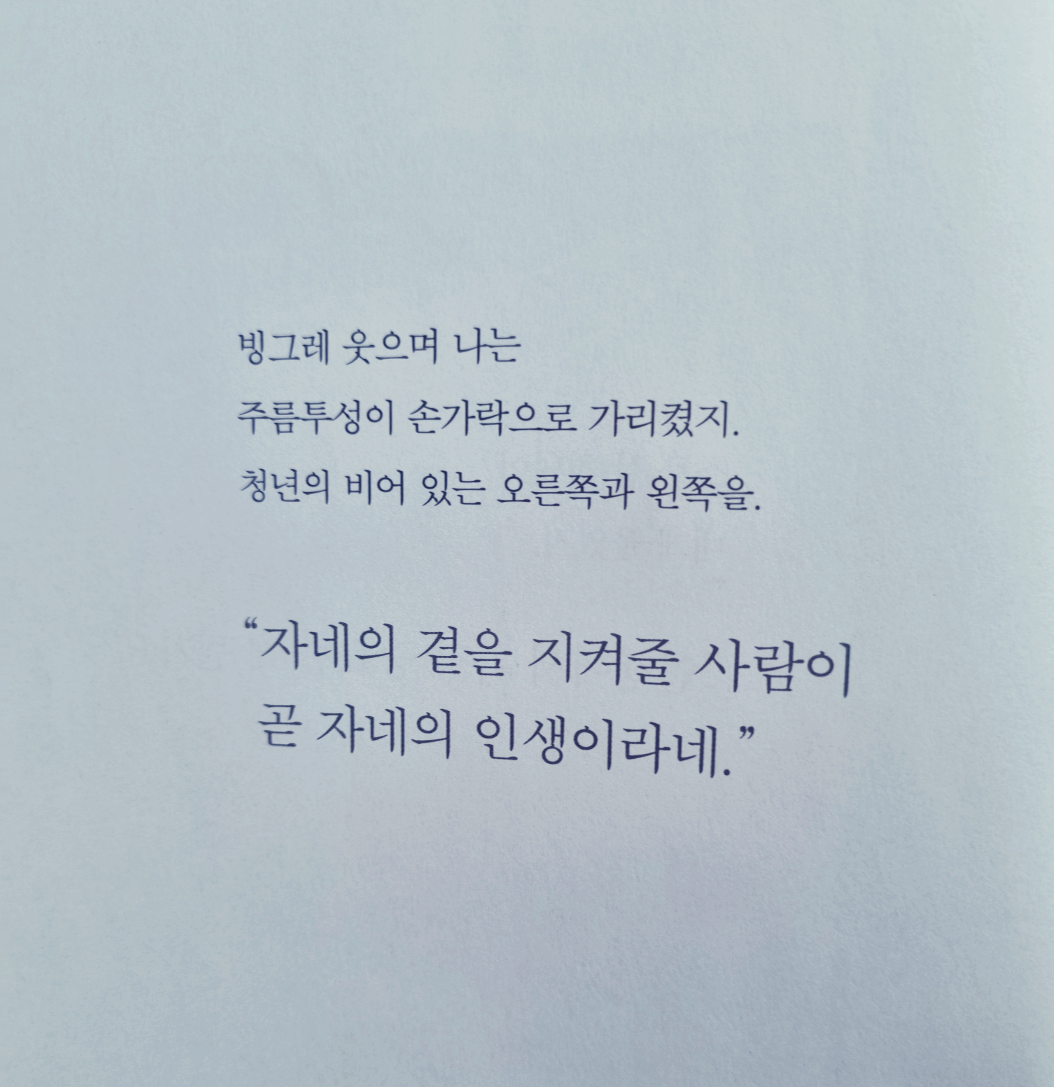 빙그레 웃으며 나는
주름투성이 손가락으로 가리켰지.
청년의 비어 있는 오른쪽과 왼쪽을.
“자네의 곁을 지켜줄 사람이
곧 자네의 인생이라네.”